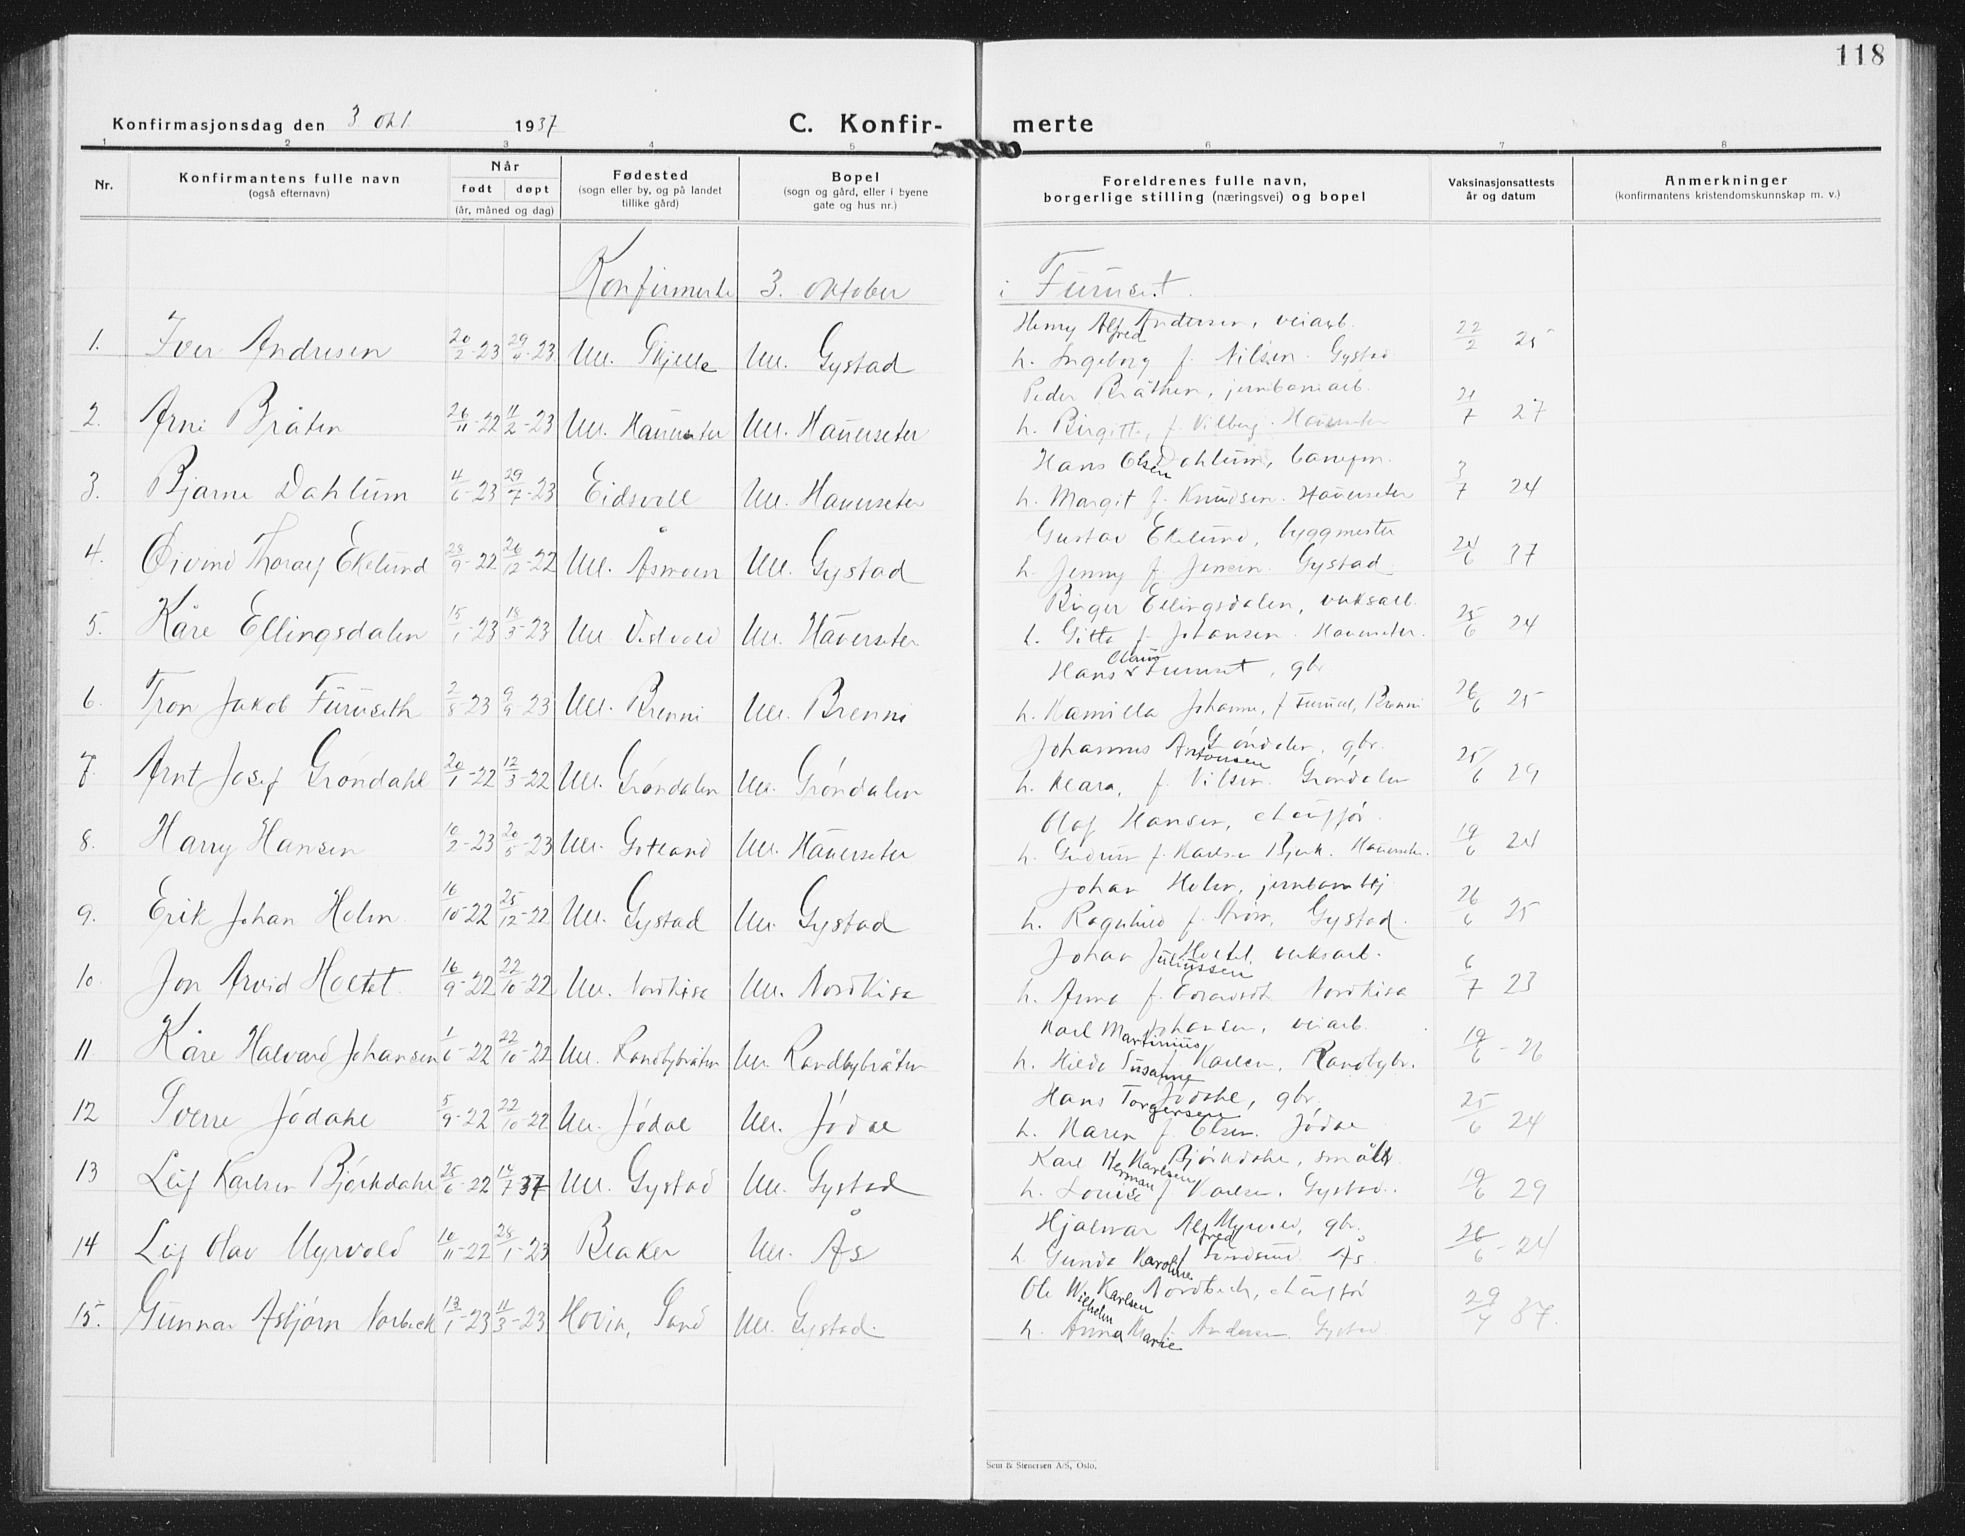 118
Konfirmasjonsdag den 3 okt. 1937 C. Konfir- merte
1 2 3 4 5 6 7 8
Nr. Konfirmantens fulle navn (også efternavn) Når født døpt (år, måned og dag) Fødested (sogn eller by, og på landet tillike gård) Bopel (sogn og gård, eller i byene gate og hus nr.) Foreldrenes fulle navn, borgerlige stilling (næringsvei) og bopel Vaksinasjonsattests år og datum Anmerkninger (konfirmantens kristendomskunnskap m. v.)
Konfirmerte 3. oktober i Furuset.
Henry Alfred Andersen, veiarb.
1. Iver Andresen 20/2-23 23 Ull. Skjelle Ull. Gystad h. Ingeborg f. Nilsen. Gystad 22/2 25
Peder Bråthen, jernbanearb.
2. Arne Bråten 26/11-22 11/2-23 Ull. Hauerseter Ull. Hauerseter h. Birgitte, f. Vilberg. Hauerseter 21/7 27
Hans Olsen Dahlum, banefm.
3. Bjarne Dahlum 4/6-23 29/7-23 Eidsvoll Ull. Hauerseter h. Margit f. Knudsen. Hauerseter 3/7 24
Gustav Ekelund, byggmester
4. Øivind Thoralf Ekelund 28/9-22 26/12-22 Ull. Åsmoen Ull. Gystad h. Jenny f. Jensen. Gystad 24/6 37
Birger Ellingsdalen, veksarb.
5. Kåre Ellingsdalen 15/1-23 18/3-23 Ull. Ull. Hauerseter h. Gitta f. Johansen. Hauerseter. 25/6 24
Hans Olaus Furuset, gbr.
6. Tron Jakob Furuseth 2/8-23 9/9-23 Ull. Brenni Ull. Brenni h. Kamilla Johanne, f. Furuset, Brenni 26/6 25
Johannes Antonsen Grøndalen, gbr.
7. Arnt Josef Grøndahl 20/1-22 12/3-22 Ull. Grøndalen Ull. Grøndalen h. Klara, f. Nilsen. Grøndalen 25/6 29
Olaf Hansen, chauffør
8. Harry Hansen 10/2-23 20/5-23 Ull. Gotland Ull. Hauerseter h. Gudrun f. Karlsen Hauerseter. 19/6 24
Johan Holm, jernbanebtj.
9. Erik Johan Holm 16/10-22 25/12-22 Ull. Gystad Ull. Gystad h. Ragnhild f. Strøm, Gystad. 26/6 25
Johan Juliussen Holtet, veksarb.
10. Jon Arvid Holtet. 16/9-22 22/10-22 Ull. Nordkisa Ull. Nordkisa h. Anna f. Nordkisa 6/7 23
Karl Martinius Johansen, veiarb.
11 Kåre Halvard Johansen 1/6-22 22/10-22 Ull. Randbybråten Ull. Randbybråten h. Hilda Susanne f. Karlsen, Randbybr. 19/6-26
Hans Torgersen Jødahl, gbr.
12 Sverre Jødahl 5/9-22 22/10-22 Ull. Jødal Ull. Jødal h. Karen f. Olsen. Jødal 25/6 24
Karl Herman Karlsen Bjørkdahl, småbr.
13 Leif Karlsen Bjørkdahl 25/6-22 14/7 37 Ull. Gystad Ull. Gystad h. Louise f. Karlsen. Gystad. 19/6 29
Hjalmar Alfred Myrvold, gbr.
14 Leif Olav Myrvold 10/11-22 28/1-23 Blaker Ull. Ås h. Gunda Karoline f. Ås 26/6-24
Ole Wilhelm Karlsen Nordbeck, chauffør
15. Gunnar Asbjørn Norbeck 13/1-23 11/3-23 Hovin, Sand Ull. Gystad. h. Anna Marie f. Andersen. Gystad 29/4 37.
Sem & Stenersen A/S, Oslo.